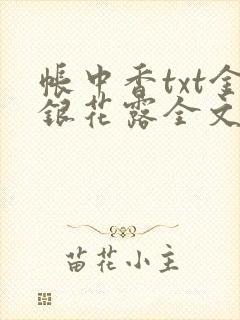 帐中香txt金
银花露全文
苗花小主